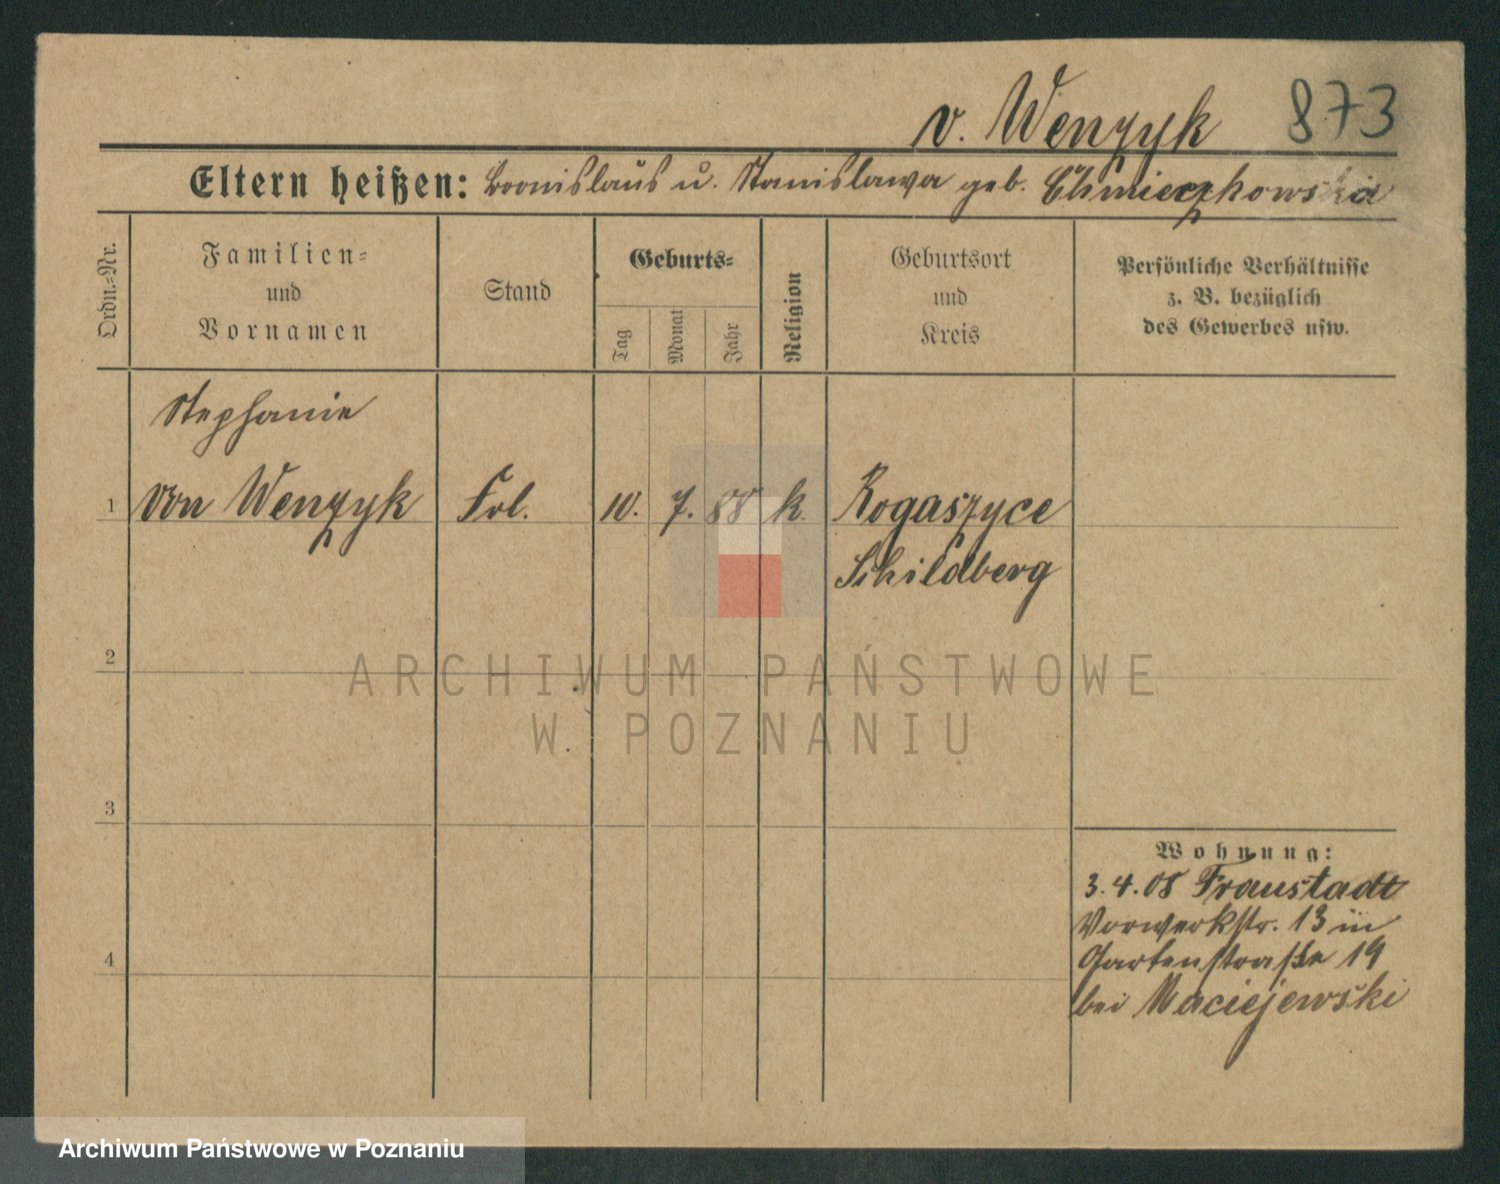 v. Wenzyk 873
Eltern heißen: Bronislaus u. Stanislawa geb.
Ordn.-Nr.
Familien-
und
Vornamen
Stand
Geburts-
Tag
Monat
Jahr
Religion
Geburtsort
und
Kreis
Persönliche Verhältnisse
z. B. bezüglich
des Gewerbes usw.
Stephanie
1 von Wenzyk Frl. 10. 7. 88 k. Rogaszyce
Schildberg
2
3
4
Wohnung:
3.4.08 Fraustadt
Vorwerkstr. 13 in
Gartenstraße 19
bei Maciejewski
ARCHIWUM PAŃSTWOWE
W POZNANIU
Archiwum Państwowe w Poznaniu